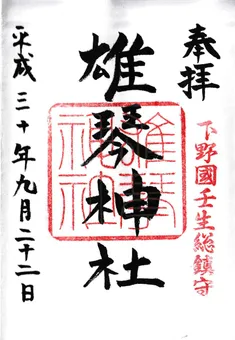 奉拝
下野國壬生総鎮守
雄琴神社
雄琴神社
平成三十年九月二十二日